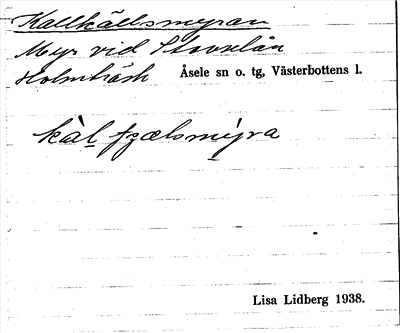 Kallkällsmyran
Myr vid Storselån
Holmträsk Åsele sn o. tg, Västerbottens l.
kàl fzælsmýra
Lisa Lidberg 1938.